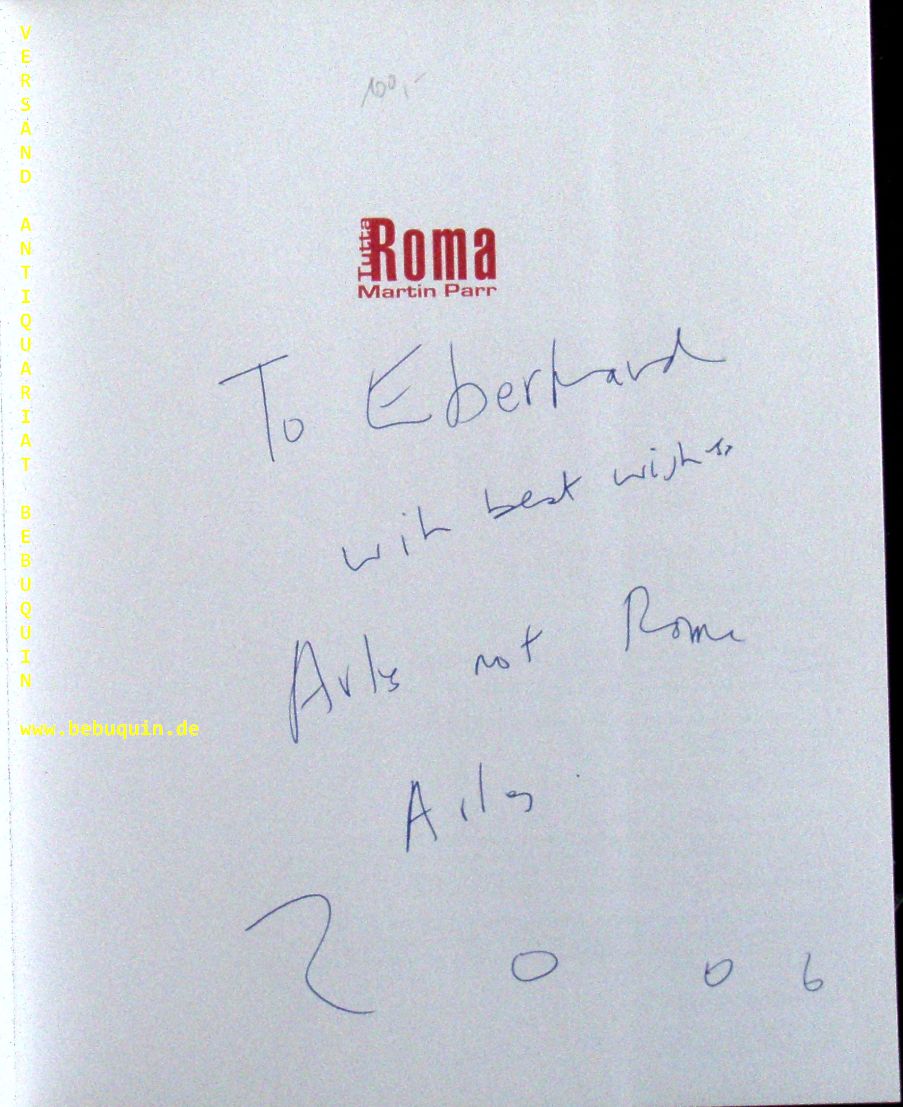 100,-
Tutta Roma
Martin Parr
To Eberhard
with best wishes
Arles not Rome
Arles.
2006
VERSAND ANTIQUARIAT BEBUQUIN
www.bebuquin.de